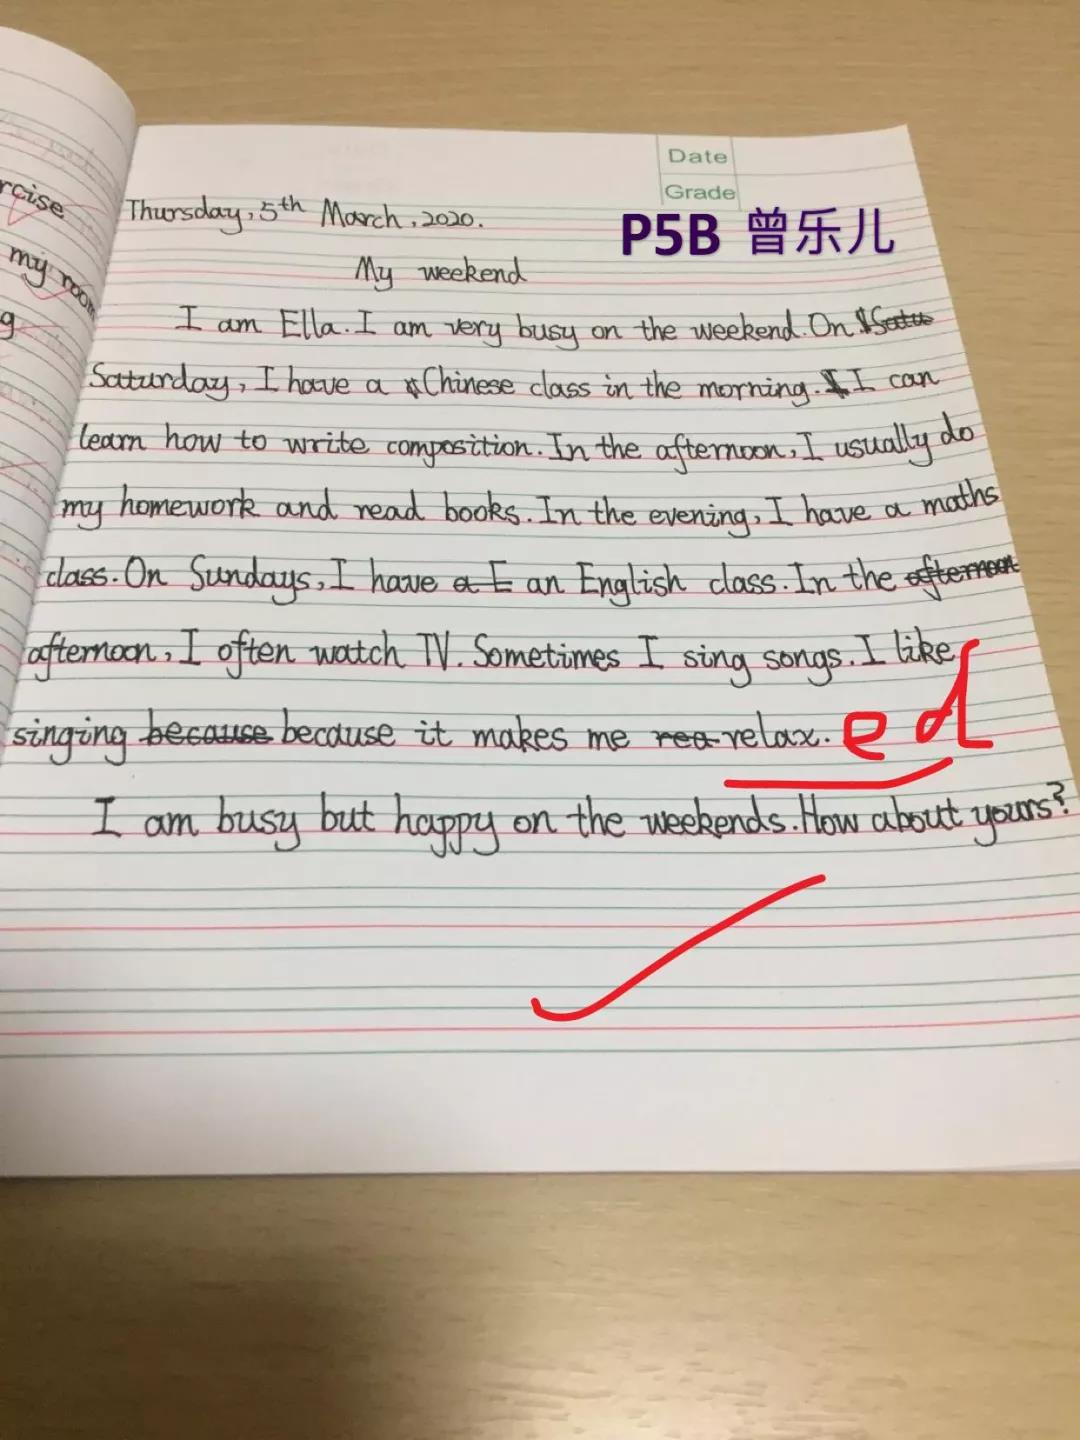 Date
Grade
rcise
my room
g
Thursday, 5th March, 2020.
P5B 曾乐儿
My weekend
I am Ella. I am very busy on the weekend. On Satu
Saturday, I have a Chinese class in the morning. I can
learn how to write composition. In the afternoon, I usually do
my homework and read books. In the evening, I have a maths
class. On Sundays, I have a E an English class. In the afternoon
afternoon, I often watch TV. Sometimes I sing songs. I like
singing because because it makes me rea relax. ed
I am busy but happy on the weekends. How about yours?